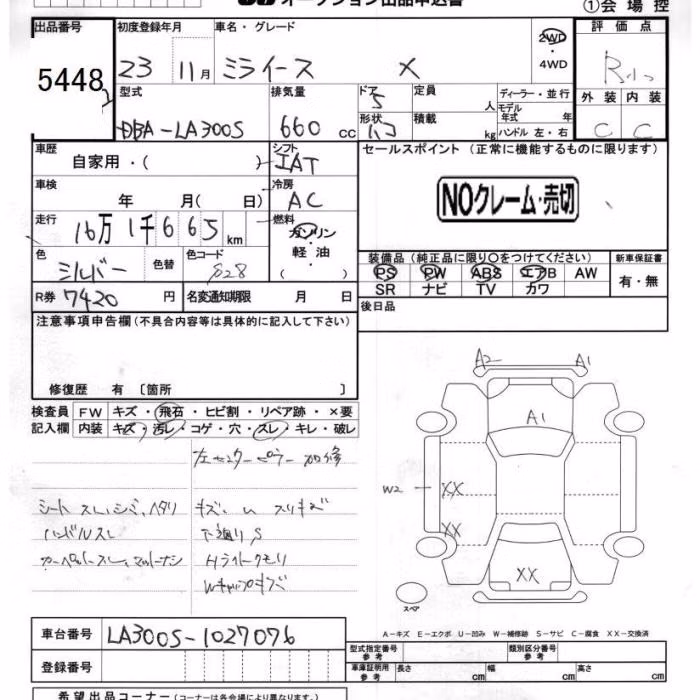 オークション出品申込書
①会場控
出品番号 初度登録年月 車名・グレード 評価点
5448 23 11月 ミライース X 2WD・4WD R
型式 排気量 ドア 定員 ディーラー・並行 外装 内装
DBA-LA300S 660cc 5 人 モデル年式 年 C C
形状 積載 kg ハンドル 左・右
車歴 シフト セールスポイント (正常に機能するものに限ります)
自家用・( ) IAT
車検 冷房 NOクレーム・売切
年 月( 日) AC
走行 燃料
16万1千665km ガソリン・軽油・( )
色 色替 色コード 装備品(純正品に限り○をつけてください) 新車保証書
シルバー S28 PS PW ABS エアB AW 有・無
SR ナビ TV カワ
R券 7420円 名変通知期限 月 日 後日品
注意事項申告欄(不具合内容等は具体的に記入して下さい)
修復歴 有 [箇所 ]
検査員記入欄 FW キズ・飛石・ヒビ割・リペア跡・×要
内装 キズ・汚レ・コゲ・穴・スレ・キレ・破レ
左センターピラー 加修
シート スレ、シミ、ヘタリ
ハンドルスレ
キズ、凹 スリキズ
下廻りS
Hライトクモリ
Wキャップキズ
A2 A1
A1
W2 XX
XX
XX
スペア
A-キズ E-エクボ U-凹み W-補修跡 S-サビ C-腐食 XX-交換済
車台番号 LA300S-1027076
型式指定番号 参考 類別区分番号 参考
登録番号
車庫証明用 参考 長さ cm 幅 cm 高さ cm
希望出品コーナー(コーナーは各会場により異なります。)